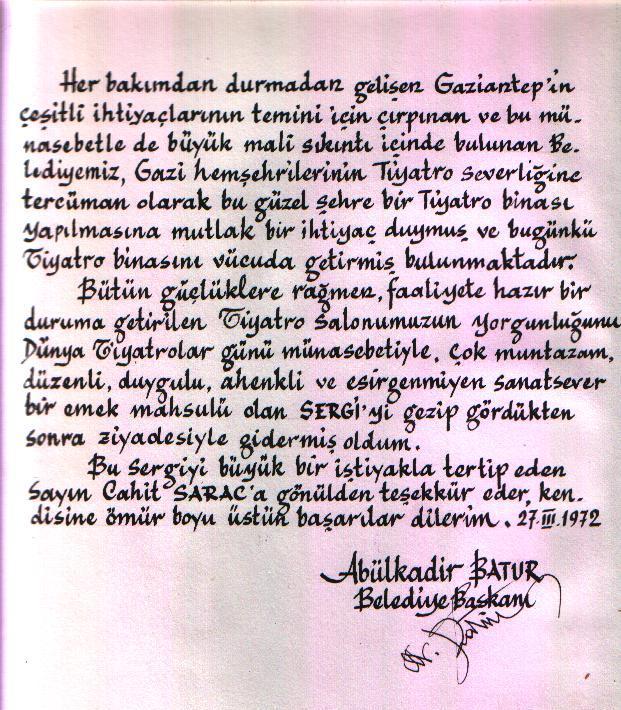 Her bakımdan durmadan gelişen Gaziantep'in
çeşitli ihtiyaçlarının temini için çırpınan ve bu mü-
nasebetle de büyük mali sıkıntı içinde bulunan Be-
lediyemiz, Gazi hemşehrilerinin Tiyatro severliğine
tercüman olarak bu güzel şehre bir Tiyatro binası
yapılmasına mutlak bir ihtiyaç duymuş ve bugünkü
Tiyatro binasını vücuda getirmiş bulunmaktadır.
Bütün güçlüklere rağmen, faaliyete hazır bir
duruma getirilen Tiyatro Salonumuzun yorgunluğunu
Dünya Tiyatrolar günü münasebetiyle, çok muntazam,
düzenli, duygulu, ahenkli ve esirgenmiyen sanatsever
bir emek mahsulü olan SERGİ'yi gezip gördükten
sonra ziyadesiyle gidermiş oldum.
Bu Sergiyi büyük bir iştiyakla tertip eden
Sayın Cahit SARAÇ'a gönülden teşekkür eder, ken-
disine ömür boyu üstün başarılar dilerim. 27.III.1972
Abülkadir BATUR
Belediye Başkanı